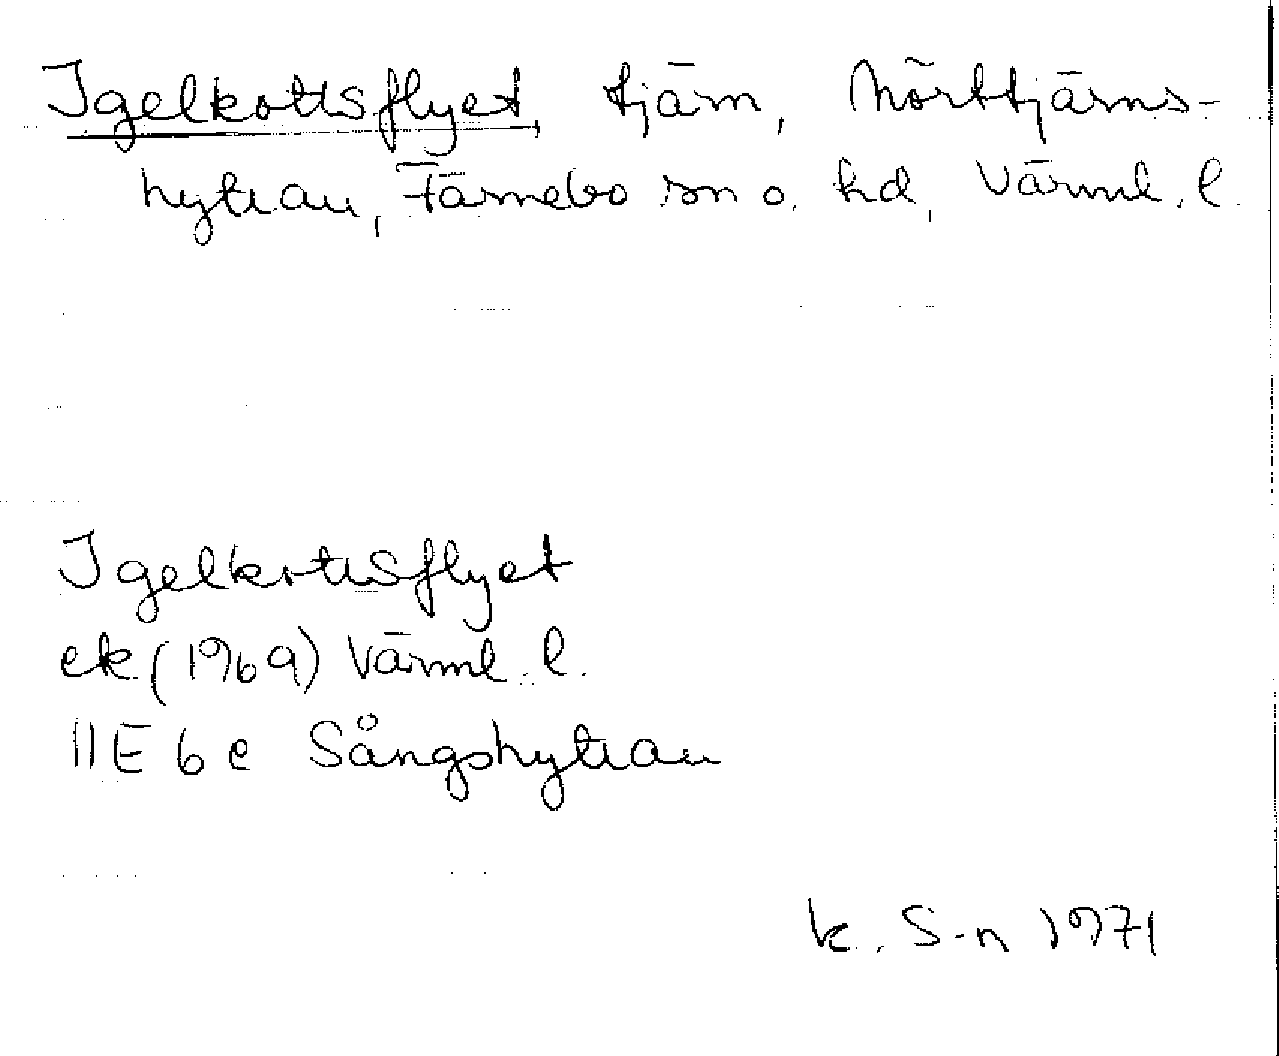 Igelkottsflyet, tjärn, Mörttjärns-
hyttan, Färnebo sn o. hd, Värml. l.
Igelkottsflyet
ek. (1969) Värml. l.
11E 6e Sångshyttan
K. S-n 1971